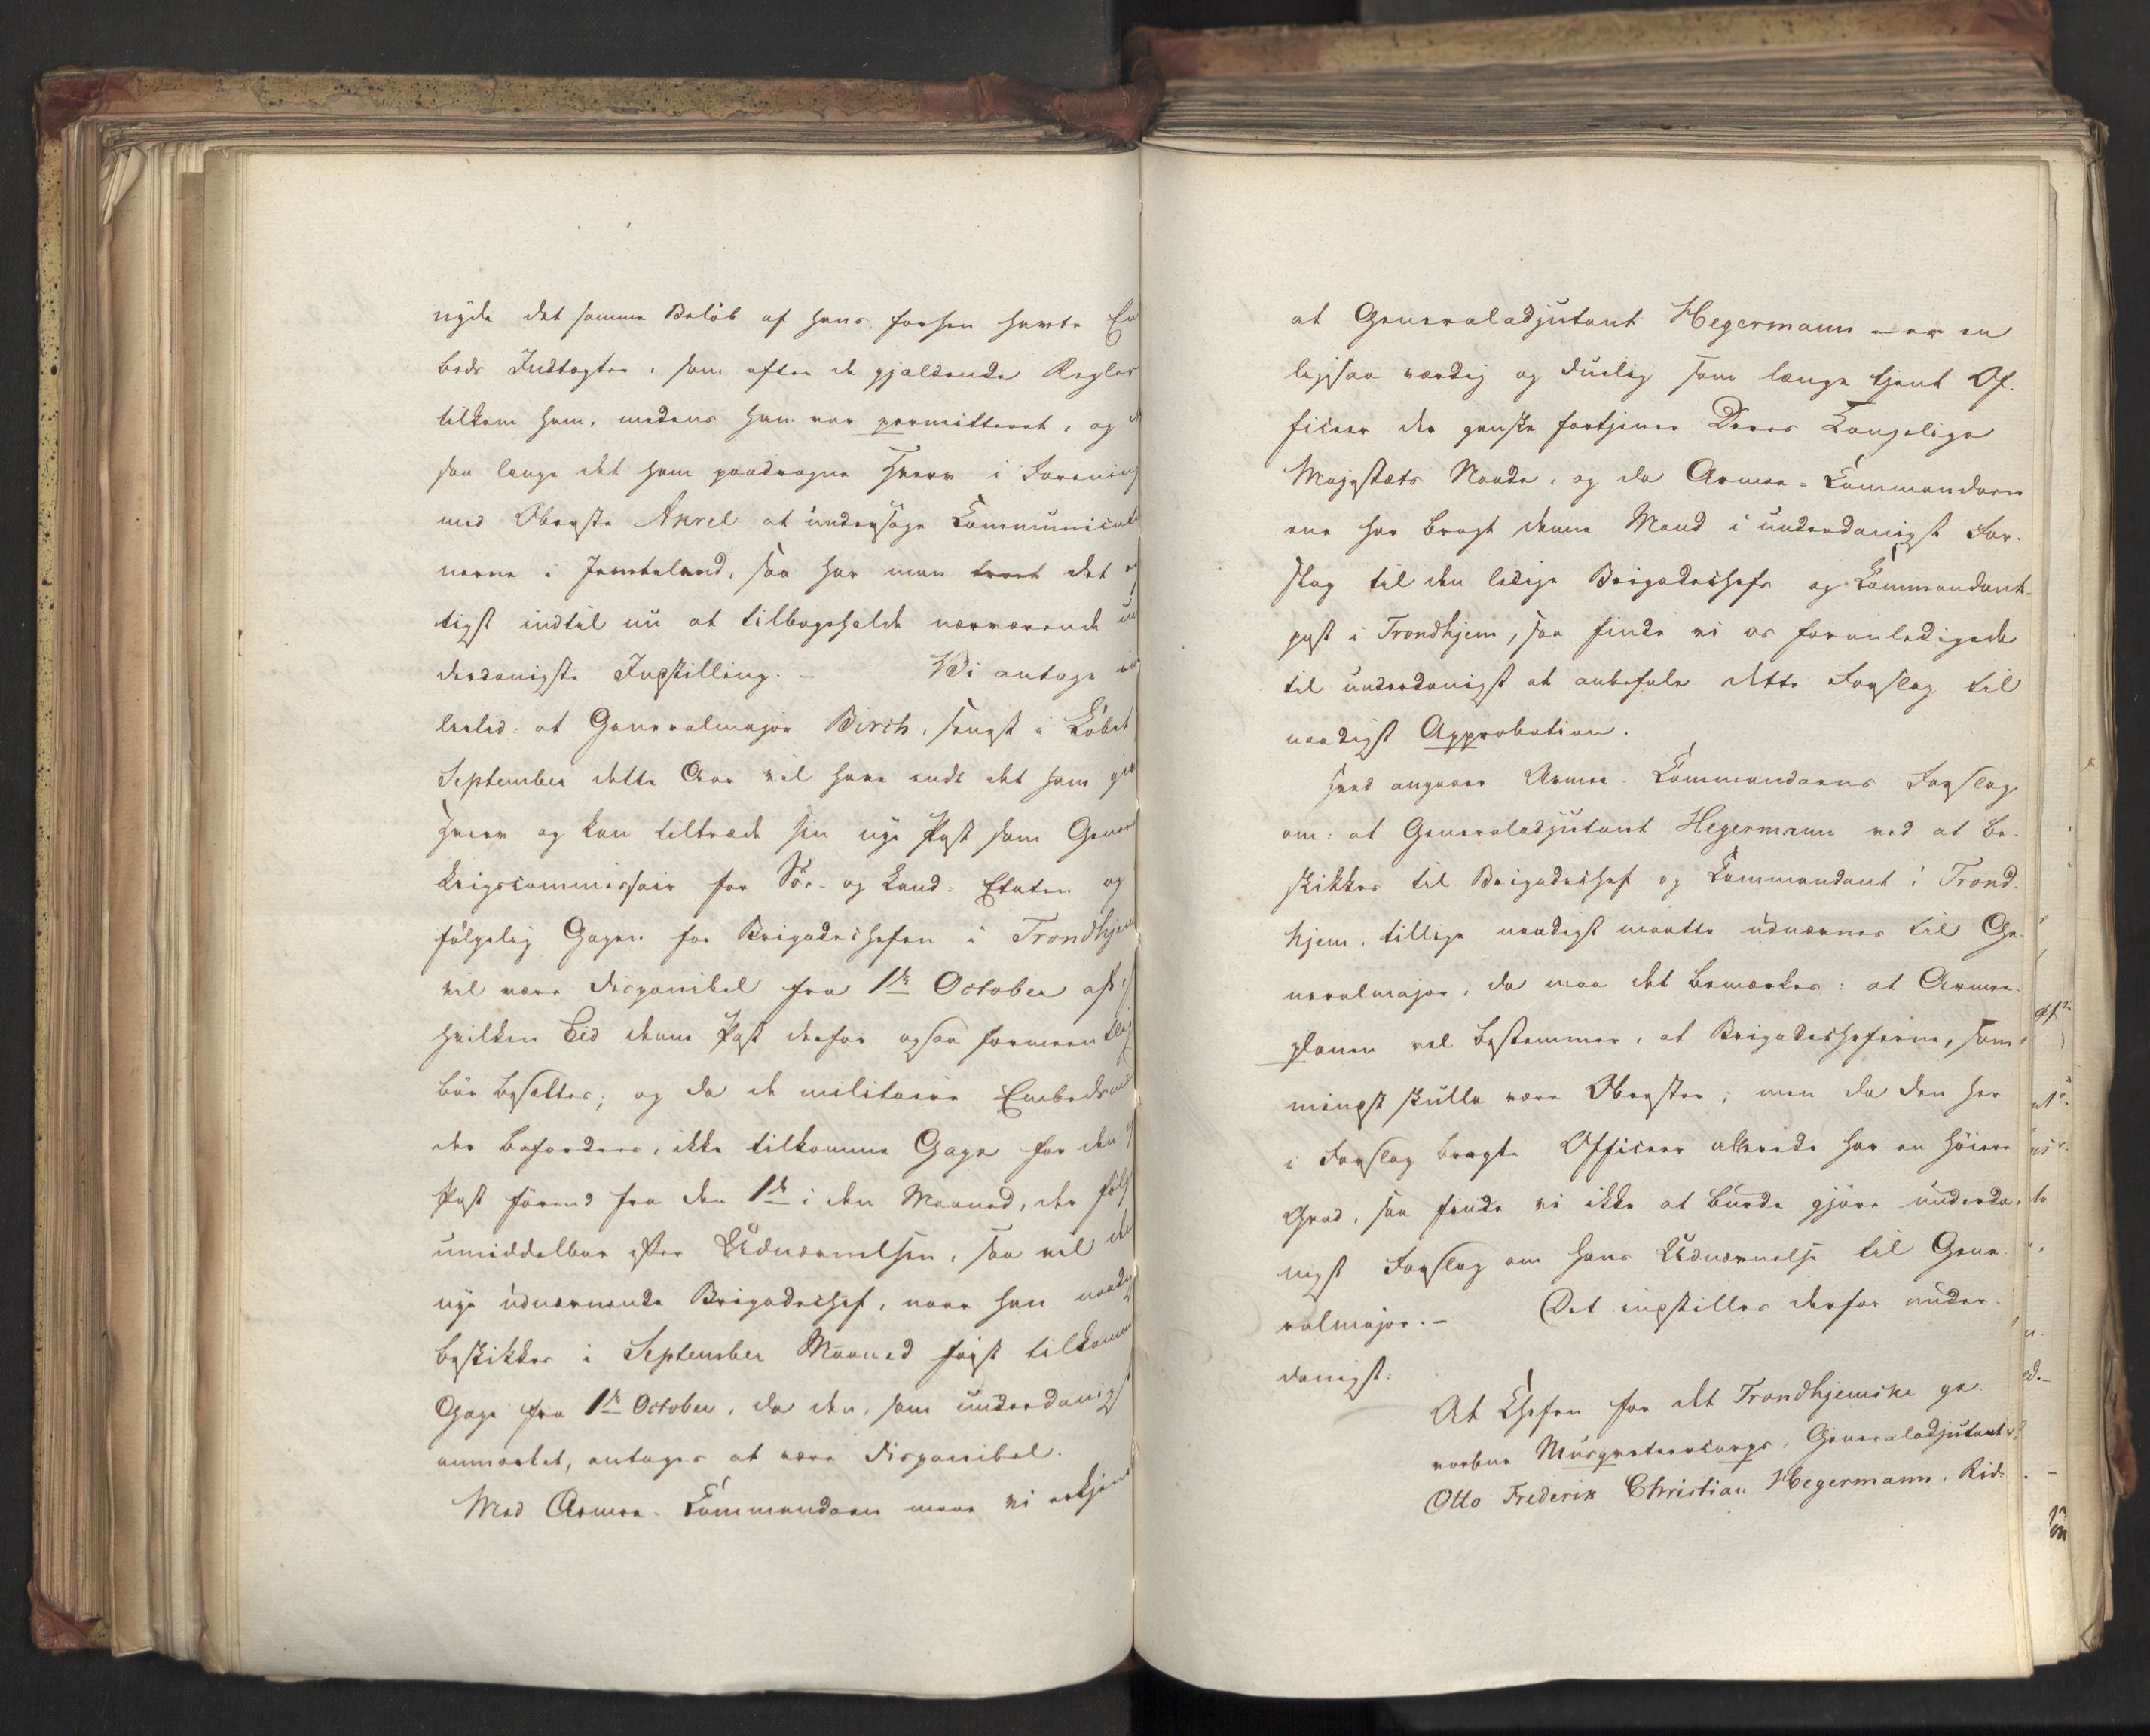 nyde det samme Beløb af hans forhen havte Em
beds Indtægter, som efter de gjældende Regler
tilkom ham, medens han var permitteret, og
saa længe det ham paadragne Hverv i Forening
med Oberste Axrel at undersøge Communicatio
nerne i Jemteland, saa har man troet det
tigst indtil nu at tilbageholde nærværende un
derdanigste Indstilling. – Vi antage
at Generalmajor Birch, senest i Løbet
September dette Aar vil have endt det ham giv
Hverv og kan tiltræde sin nye Post som General
krigscommissair for Søe- og Land-Etaten og
følgelig Gagen for Brigadechefen i Trondhjem
vil være disponibel fra 1ste October af,
hvilken Tid denne Post derfor ogsaa formeentlig
bør besættes; og da de militaire Embedsmænd
der befordres, ikke tilkomme Gage for den
Post førend fra den 1ste i den Maaned, der følger
umiddelbar efter Udnævnelsen, saa vil den
nye udnævnende Brigadechef, naar han naadigst
beskikkes i September Maaned først tilkomme
Gage fra 1ste October, da den, som underdanigst
anmærket, antages at være disponibel.
Med Armee-Commandoen maae vi erkjende
at Generaladjutant Hegermann – er en
ligesaa værdig og duelig som længe tjent Of-
ficeer der ganske fortjener Deres Kongelige
Majestæts Naade, og da Armee-Commandoen
har bragt denne Mand i underdanigst For-
slag til den ledige Brigadechefs og Commandant-
post i Trondhjem, saa finde vi os foranledigede
til underdanigst at anbefale dette Forslag til
naadigst Approbation.
Hvad angaaer Armee-Commandoens Forslag
om: at Generaladjutant Hegermann ved at be-
skikkes til Brigadechef og Commandant i Trond-
hjem, tillige naadigst maatte udnævnes til Ge-
neralmajor, da maa det bemærkes: at Armee-
planen vel bestemmer, at Brigadecheferne, som
mingst skulle være Oberster; men da den her
i Forslag bragte Officeer allerede har en høiere
Grad, saa finde vi ikke at burde gjøre underda-
nigst Forslag om hans Udnævnelse til Gene-
ralmajor. – Det indstilles derfor under-
danigst:
At Chefen for det Trondhjemske ge-
vorbne Musqueteercorps, Generaladjutant
Otto Frederik Christian Hegermann, Rid-